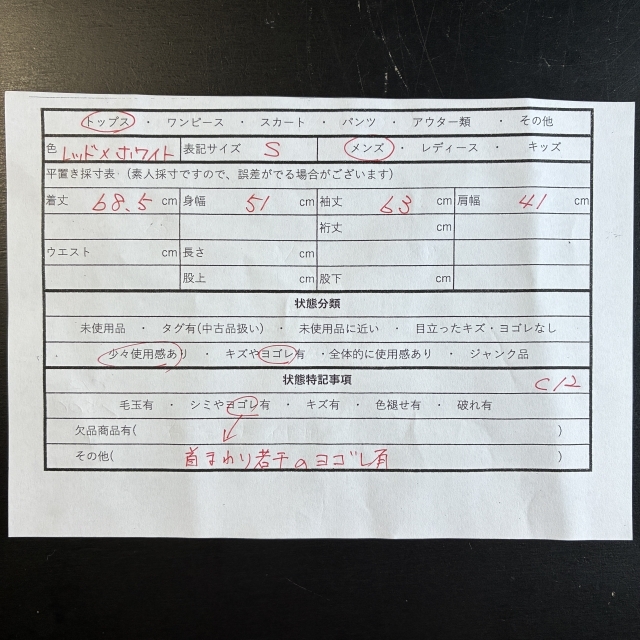 トップス ・ ワンピース ・ スカート ・ パンツ ・ アウター類 ・ その他
色 レッド×ホワイト 表記サイズ S メンズ ・ レディース ・ キッズ
平置き採寸表 (素人採寸ですので、誤差がでる場合がございます)
着丈 68.5 cm 身幅 51 cm 袖丈 63 cm 肩幅 41 cm
裄丈 cm
ウエスト cm 長さ cm
股上 cm 股下 cm
状態分類
未使用品 ・ タグ有(中古品扱い) ・ 未使用品に近い ・ 目立ったキズ・ヨゴレなし
少々使用感あり ・ キズやヨゴレ有 ・全体的に使用感あり ・ ジャンク品
状態特記事項 C12
毛玉有 ・ シミやヨゴレ有 ・ キズ有 ・ 色褪せ有 ・ 破れ有
欠品商品有( )
その他( 首まわり若干のヨゴレ有 )